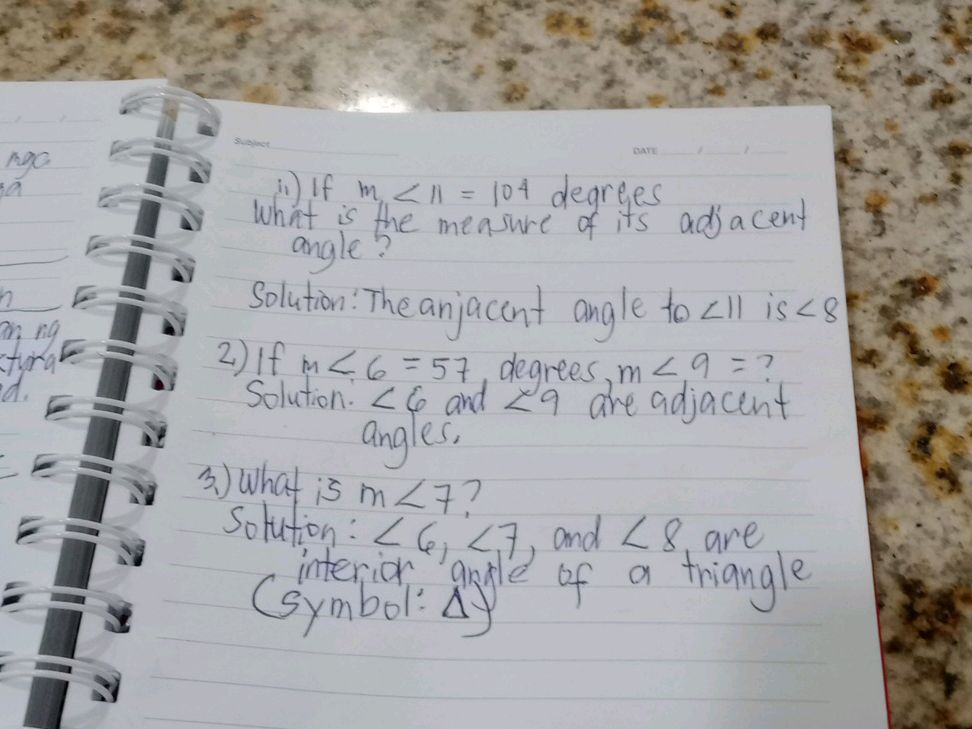 ngo
a
n
an ng
ktyra
d.
Subject
DATE / /
1.) If m < 11 = 104 degrees
What is the measure of its adjacent
angle?
Solution: The anjacent angle to <11 is <8
2.) If m < 6 = 57 degrees, m < 9 = ?
Solution. <6 and <9 are adjacent
angles.
3.) What is m < 7?
Solution: <6, <7, and <8 are
interior angle of a triangle
(symbol: Δ)